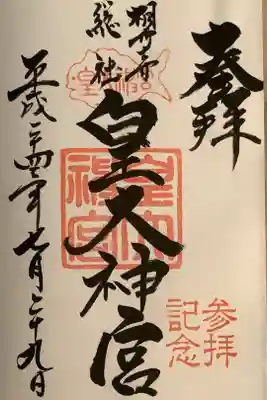 奉拝
総社
皇大神宮
皇大神宮
平成二十四年七月二十九日
参拝
記念